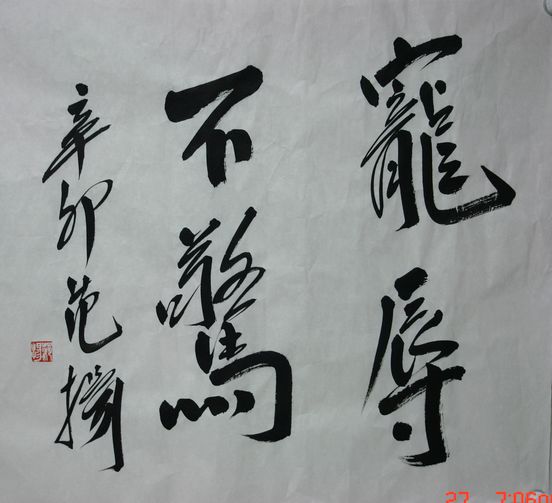 寵辱
不驚
辛卯 范
27 7:06